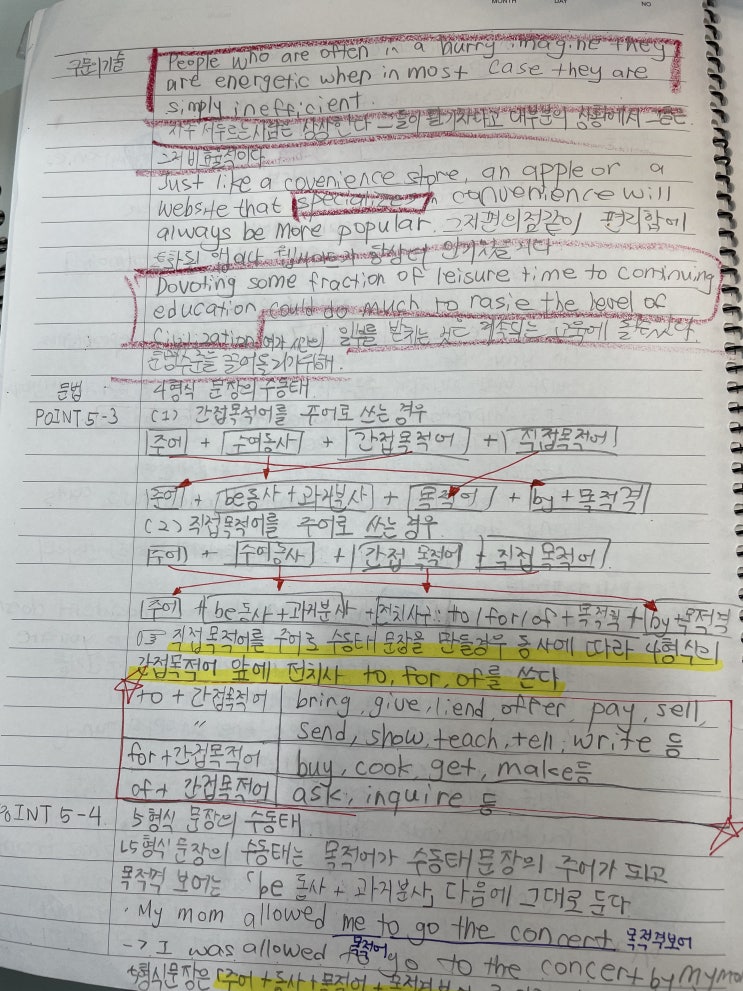 MONTH DAY NO
구문의기술 People who are often in a hurry imagine they
are energetic when in most case they are
simply inefficient.
자주 서두르는 사람은 상상한다 그들이 활기차다고 대부분의 상황에서 그들은
그저 비효율적이다
Just like a covenience store, an apple or a
website that specializes in convenience will
always be more popular. 그저편의점같이 편리함에
특화된 웹사이트가 항상 더
Dovoting some fraction of leisure time to continuing
education could do much to rasie the level of
civilization 일부를 바치는 것은 계속되는 교육에
문명수준을 끌어올리기위해.
문법 4형식 문장의 수동태
POINT 5-3 (1) 간접목적어를 주어로 쓰는 경우
주어 + 수여동사 + 간접목적어 + 직접목적어
주어 + be동사 + 과거분사 + 목적어 + by + 목적격
(2) 직접목적어를 주어로 쓰는 경우
주어 + 수여동사 + 간접 목적어 + 직접 목적어
주어 + be동사 + 과거분사 + 전치사구: to/for/of + 목적격 + by + 목적격
직접목적어를 주어로 수동태 문장을 만들경우 동사에 따라 4형식의
간접목적어 앞에 전치사 to, for, of를 쓴다
to + 간접목적어 bring, give, liend, offer, pay, sell,
" send, show, teach, tell, write 등
for + 간접목적어 buy, cook, get, make등
of + 간접목적어 ask, inquire 등
POINT 5-4. 5형식 문장의 수동태
↳5형식 문장의 수동태는 목적어가 수동태 문장의 주어가 되고
목적격 보어는 「be 동사 + 과거분사」 다음에 그대로 둔다
· My mom allowed me to go the concert. 목적격보어
목적어
-> I was allowed to go to the concert by my mom
형식문장은 「주어 + 동사 + 목적어 + 목적격보어